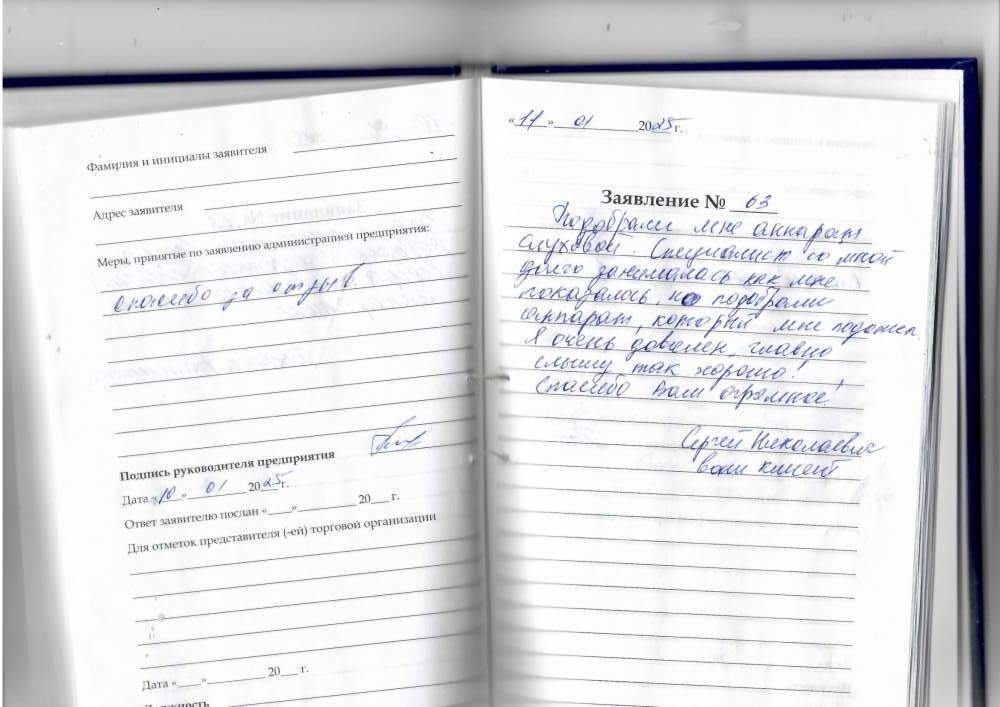 Фамилия и инициалы заявителя
Адрес заявителя
Меры, принятые по заявлению администрацией предприятия:
спасибо за отзыв.
Подпись руководителя предприятия
Дата «10» 01 2025г.
Ответ заявителю послан «____»__________ 20___ г.
Для отметок представителя (-ей) торговой организации
Дата «____»__________ 20___ г.
Должность
«11» 01 2025г.
Заявление № 63
Подобрали мне аппарат
слуховой. Специалист со мной
долго занималась как мне
показалось, но подобрали
аппарат, который мне подошел.
Я очень доволен, главно
слышу так хорошо!
Спасибо Вам огромное!
Сергей Николаевич
ваш клиент